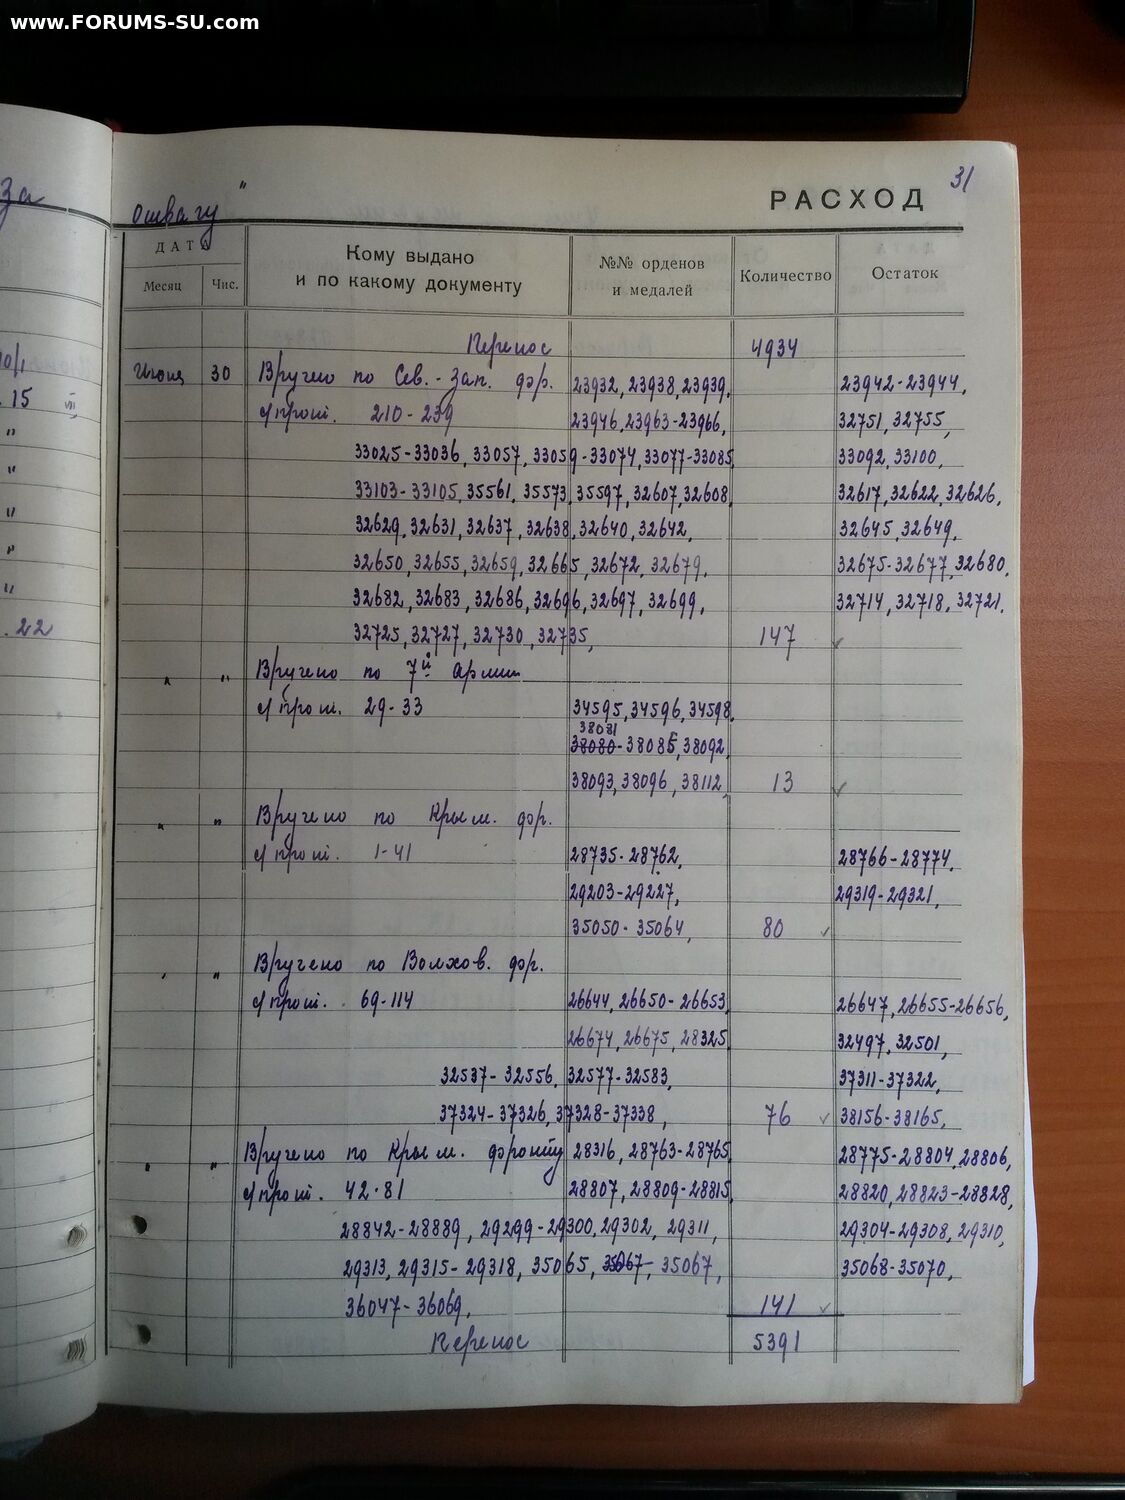 www.FORUMS-SU.com
за
отвагу"
РАСХОД
31
ДАТА
Месяц
Чис.
Кому выдано
и по какому документу
№№ орденов
и медалей
Количество
Остаток
Перенос 4934
Июня 30 Вручено по Сев.-Зап. фр. 23932, 23938, 23939, 23942-23944,
с/прот. 210-239 23946, 23963-23966, 32751, 32755,
33025-33036, 33057, 33059-33074, 33077-33085, 33092, 33100,
33103-33105, 35561, 35573, 35597, 32607, 32608, 32617, 32622, 32626,
32629, 32631, 32637, 32638, 32640, 32642, 32645, 32649,
32650, 32655, 32659, 32665, 32672, 32679, 32675-32677, 32680,
32682, 32683, 32686, 32696, 32697, 32699, 32714, 32718, 32721,
32725, 32727, 32730, 32735, 147 ✓
" " Вручено по 7й Армии
с/прот. 29-33 34595, 34596, 34598,
38081
38080-38085, 38092,
38093, 38096, 38112, 13 ✓
" " Вручено по Крым. фр.
с/прот. 1-41 28735-28762, 28766-28774,
29203-29227, 29319-29321,
35050-35064, 80 ✓
" " Вручено по Волхов. фр.
с/прот. 69-114 26644, 26650-26653, 26647, 26655-26656,
26674, 26675, 28325, 32497, 32501,
32537-32556, 32577-32583, 37311-37322,
37324-37326, 37328-37338, 76 ✓ 38156-38165,
" " Вручено по Крым. фронту 28316, 28763-28765, 28775-28804, 28806,
с/прот. 42-81 28807, 28809-28815, 28820, 28823-28828,
28842-28889, 29299-29300, 29302, 29311, 29304-29308, 29310,
29313, 29315-29318, 35065, 35067, 35067, 35068-35070,
36047-36069, 141 ✓
Перенос 5391
10/1
. 15 VII
"
"
"
"
"
. 22